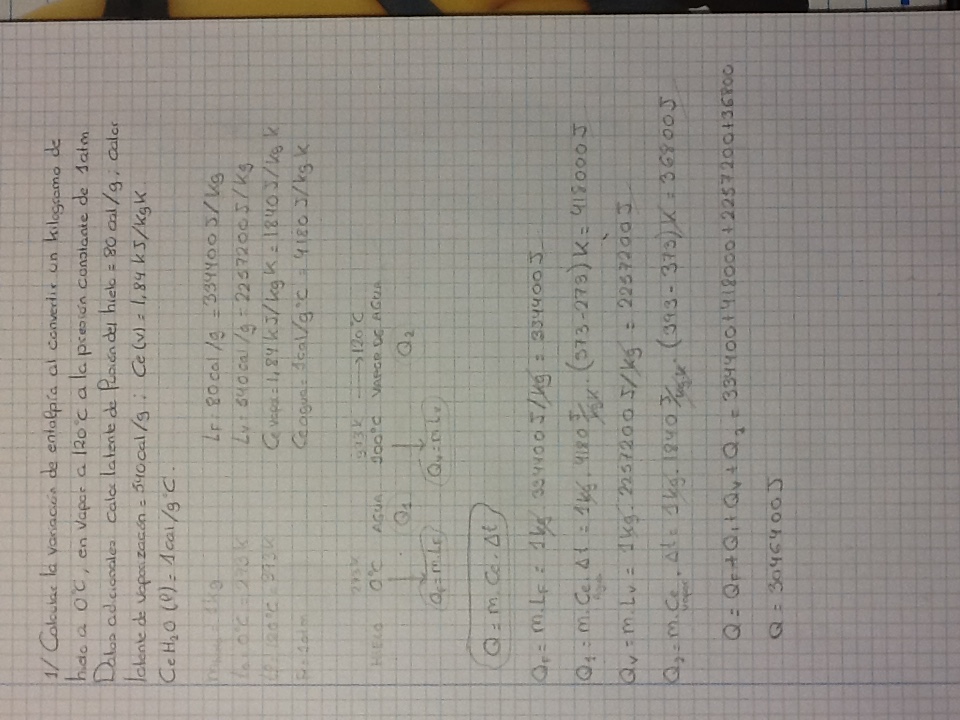 1/ Calcular la variación de entalpía al convertir un kilogramo de
hielo a 0°C, en vapor a 120°C a la presión constante de 1atm
Datos adicionales calor latente de fusión del hielo = 80 cal/g ; calor
latente de vaporización = 540cal/g ; Ce (v) = 1,84 kJ/kgK.
CeH2O (l) = 1cal/g°C.
LF 80cal/g = 334400J/kg
Lv 540cal/g = 2257200J/kg
Ce vapor = 1,84kJ/kg K = 1840J/kg K
Ce agua = 1cal/g°C = 4180 J/kg K
273K 373K
HIELO 0°C AGUA 100°C VAPOR DE AGUA → 120°C
Q1 Q2
QF = m.LF Qv = m.Lv
Q = m.Ce.Δt
QF = m.LF = 1kg 334400J/kg = 334400J
Q1 = m.Ce agua.Δt = 1kg.4180 J/kgK.(373-273)K = 418000J
Qv = m.Lv = 1kg.2257200J/kg = 2257200J
Q2 = m.Ce vapor.Δt = 1kg.1840 J/kgK.(393-373)K = 36800J
Q = QF+Q1+Qv+Q2 = 334400+418000+2257200+36800
Q = 3046400J